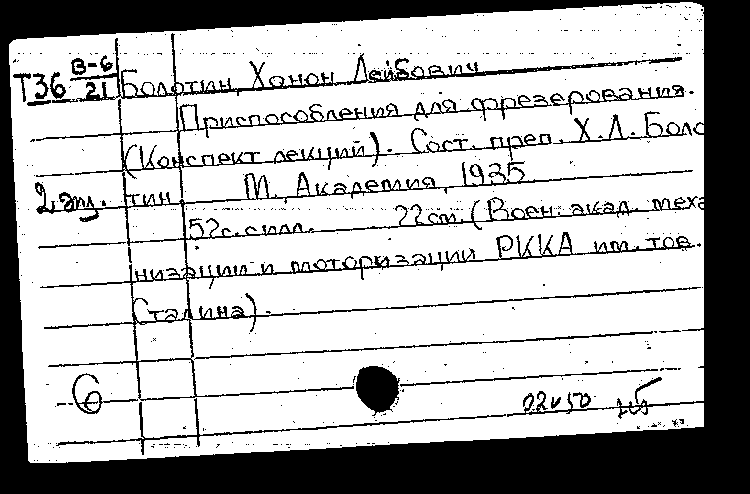 Т36 В-6/21 Болотин, Ханон Лейбович
Приспособления для фрезерования.
(Конспект лекций). Сост. преп. Х.Л. Боло
2 экз. тин. М., Академия, 1935.
52с. с илл. 22см. (Воен. акад. меха
низации и моторизации РККА им. тов.
Сталина).
6